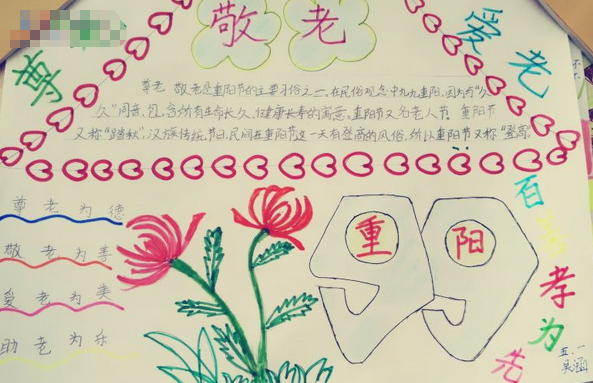 尊 敬 老 爱 老
尊老 敬老是重阳节的主要习俗之一,在民俗观念中九九重阳,因为与"久
久"同音,包含所有生命长久、健康长寿的寓意,重阳节又名老人节 重阳节
又称"踏秋",汉族传统节日,民间在重阳节这一天有登高的风俗,所以重阳节又称"登高
尊老为德
敬老为善
爱老为美
助老为乐
重 阳
百善孝为先
五.一